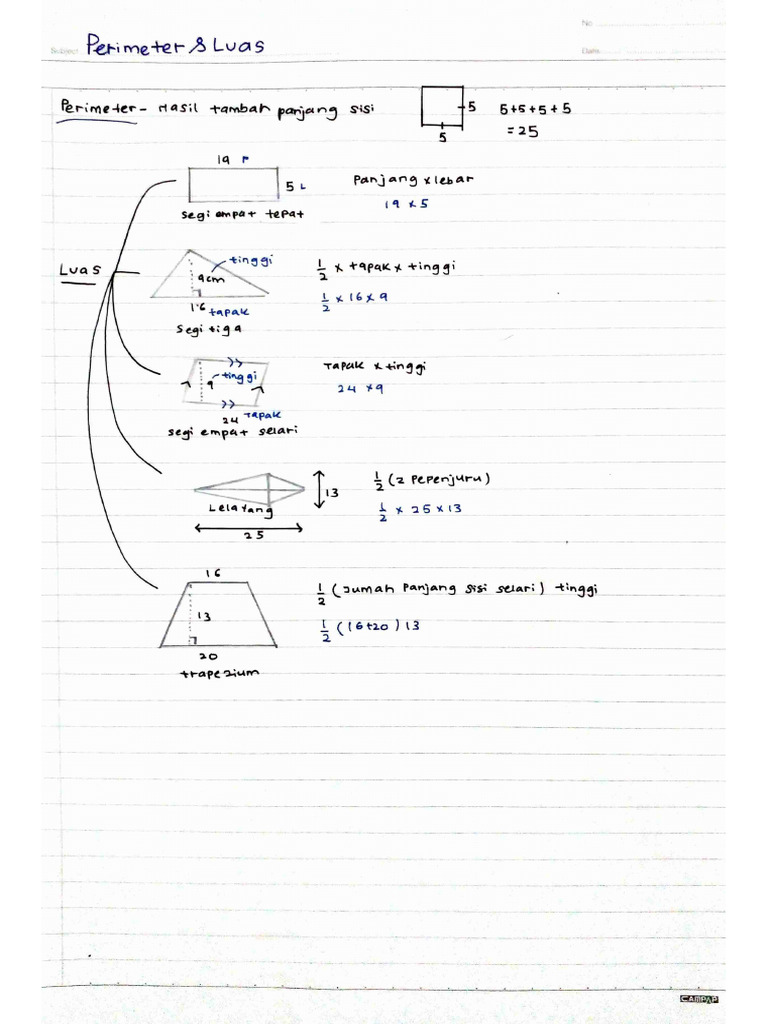 No
Subject Perimeter & Luas
Date
Perimeter - Hasil tambah panjang sisi
5
5
5+5+5+5
= 25
19 P
5 L
segi empat tepat
Panjang x lebar
19 x 5
Luas
tinggi
9cm
16 tapak
segi tiga
1/2 x tapak x tinggi
1/2 x 16 x 9
9 tinggi
24 Tapak
segi empat selari
Tapak x tinggi
24 x 9
Lelayang
13
25
1/2 (2 Pepenjuru)
1/2 x 25 x 13
16
13
20
trapezium
1/2 (Jumah Panjang sisi selari) tinggi
1/2 (16+20) 13
CAMPAP